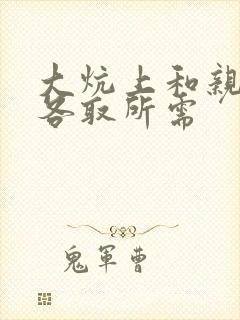 大炕上和親
各取所需
鬼軍曹